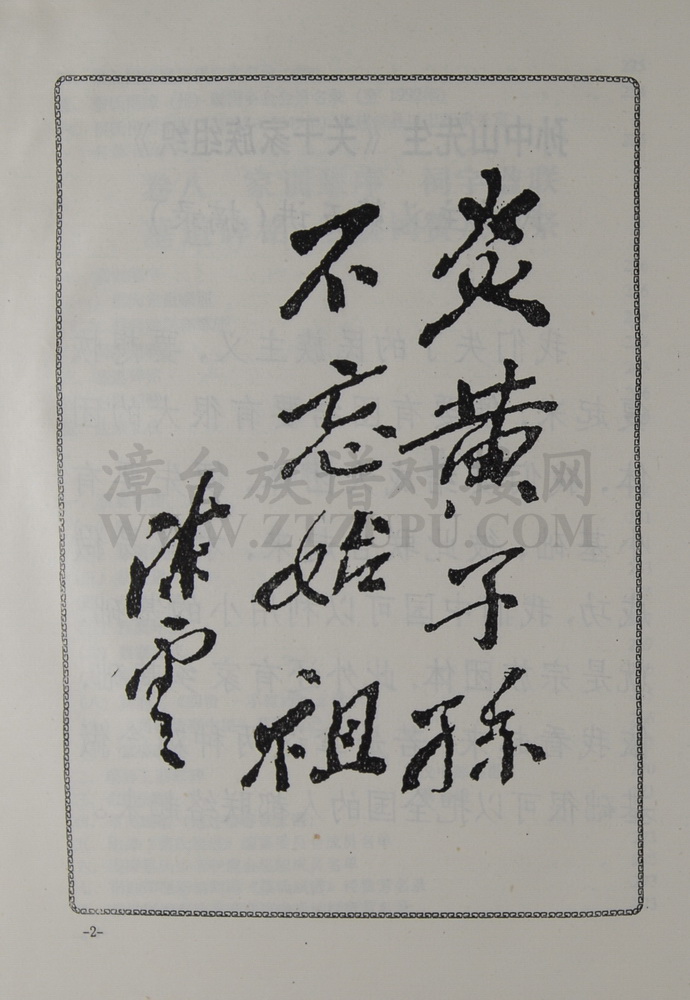 炎黄子孙
不忘始祖
陈云
漳台族谱对接网
WWW.ZTZUPU.COM
-2-